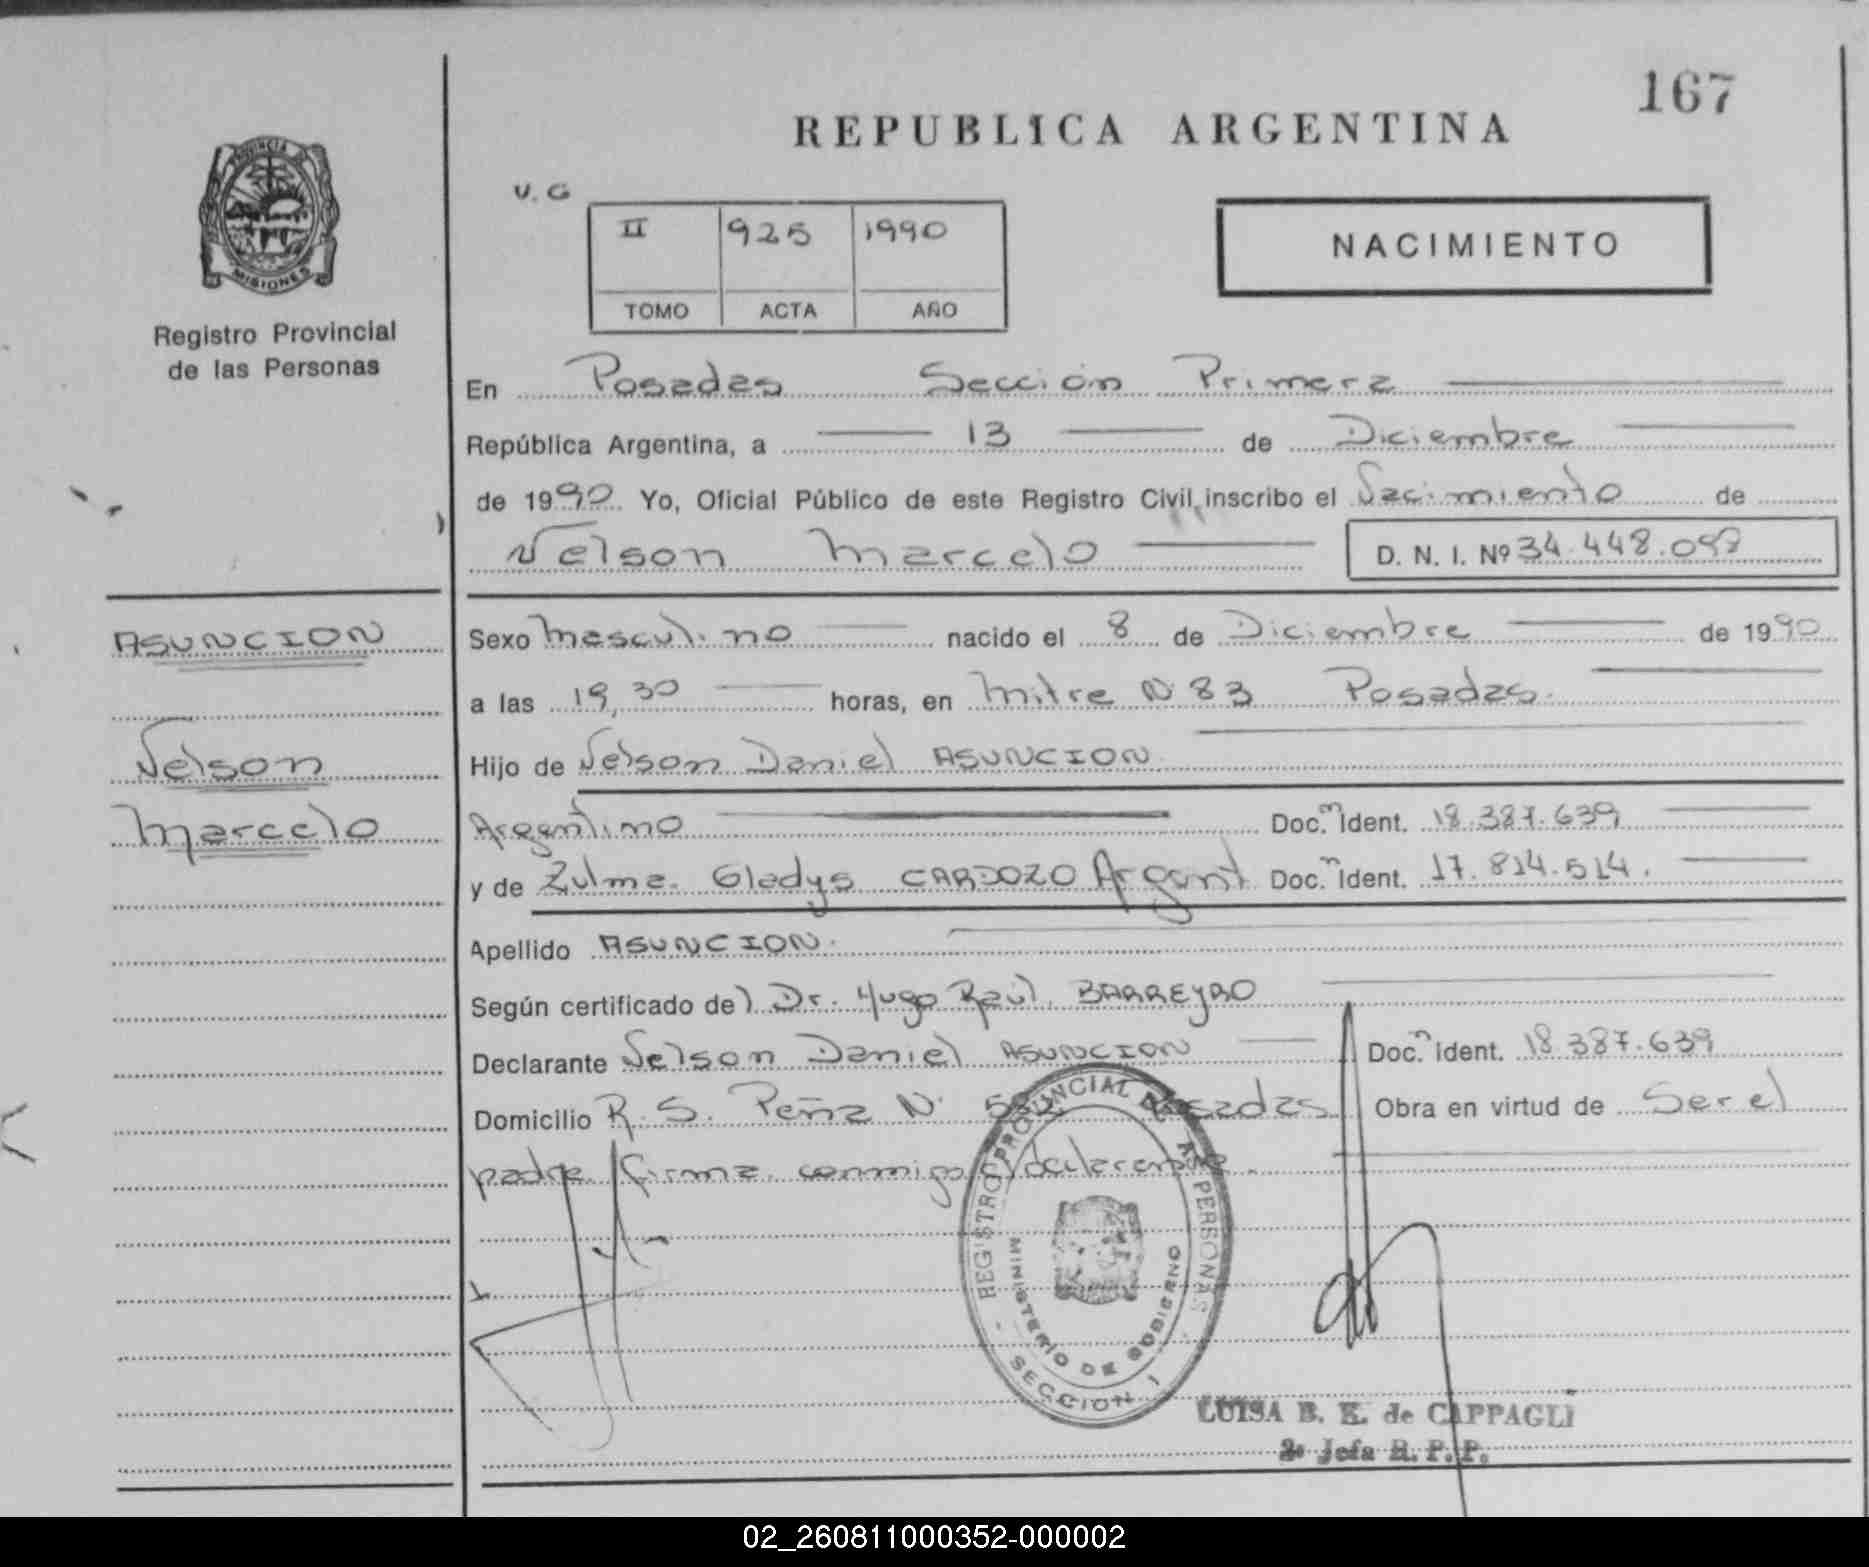 167
REPUBLICA ARGENTINA
V. G
II 925 1990
TOMO ACTA AÑO
NACIMIENTO
PROVINCIA DE
MISIONES
Registro Provincial
de las Personas
En Posadas Sección Primera
República Argentina, a 13 de Diciembre
de 1990 Yo, Oficial Público de este Registro Civil, inscribo el Nacimiento de
Nelson Marcelo D. N. I. Nº 34.448.098
ASUNCION
Nelson
Marcelo
Sexo Masculino nacido el 8 de Diciembre de 1990
a las 19,30 horas, en Mitre Nº 83 Posadas.
Hijo de Nelson Daniel ASUNCION
Argentino Doc.n Ident. 18.387.639
y de Zulma Gladys CARDOZO Argent Doc.n Ident. 17.814.514.
Apellido ASUNCION.
Según certificado del Dr. Hugo Raúl BARREYRO
Declarante Nelson Daniel ASUNCION Doc.n Ident. 18.387.639
Domicilio R. S. Peña Nº Posadas Obra en virtud de Ser el
padre firma conmigo declarante.
REGISTRO PROVINCIAL DE LAS PERSONAS
MINISTERIO DE GOBIERNO
SECCION 1
LUISA B. E. de CAPPAGLI
2ª Jefa R. P. P.
02_260811000352-000002